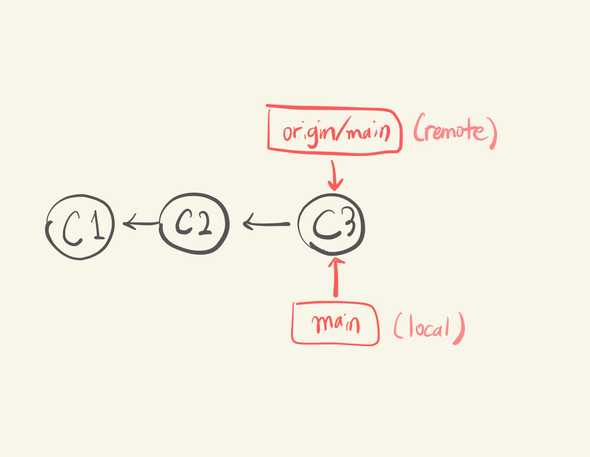 origin/main (remote)
C1 C2 C3
main (local)